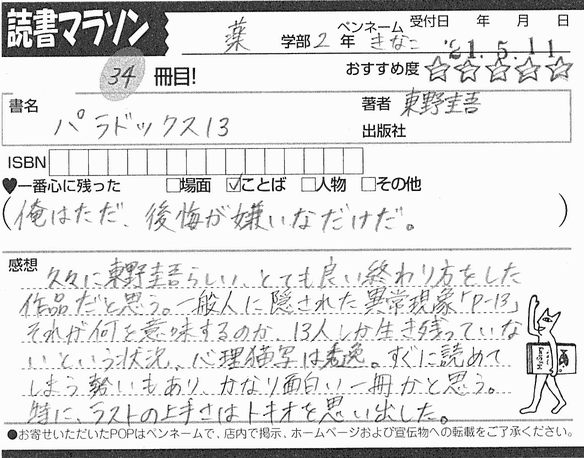 読書マラソン
薬 学部 2 年 ペンネーム きなこ 受付日 年 月 日
'21.5.11
34 冊目! おすすめ度 ☆☆☆☆☆
書名 パラドックス13
著者 東野圭吾
出版社
ISBN
♥一番心に残った □場面 ☑ことば □人物 □その他
(俺はただ、後悔が嫌いなだけだ。)
感想
久々に東野圭吾らしい、とても良い終わり方をした
作品だと思う。一般人に隠された異常現象「P-13」
それが何を意味するのか、13人しか生き残っていな
いという状況、心理描写は秀逸。すぐに読めて
しまう勢いもあり、かなり面白い一冊かと思う。
特に、ラストの上手さはトキオを思い出した。
●お寄せいただいたPOPはペンネームで、店内で掲示、ホームページおよび宣伝物への転載をご了承ください。